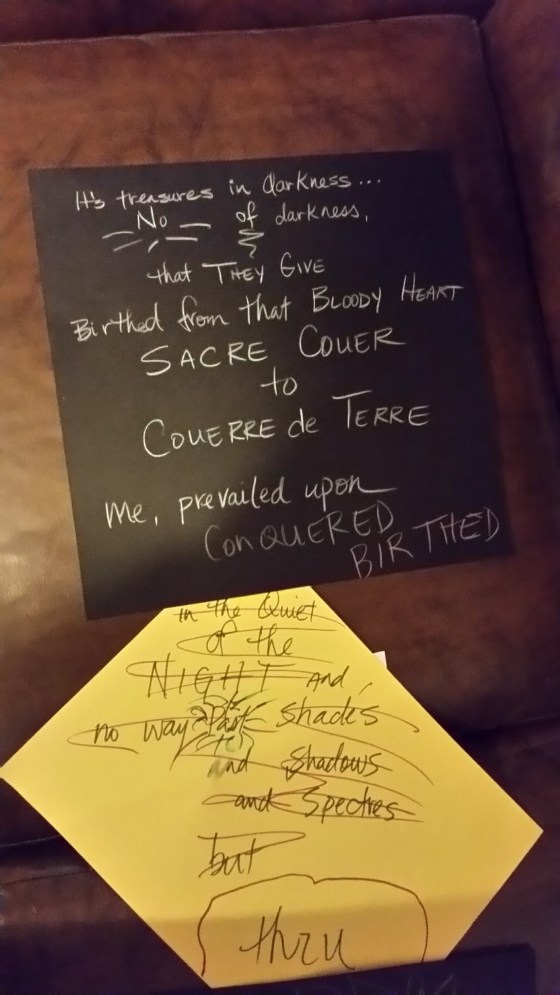 It's treasures in darkness...
No of darkness,
that THEY GIVE
Birthed from that BLOODY HEART
SACRE COUER
to
COUERRE de TERRE
Me, prevailed upon
CONQUERED
BIRTHED
in the Quiet
of the
NIGHT And,
no way Past shades
and shadows
and Spectres
but
thru